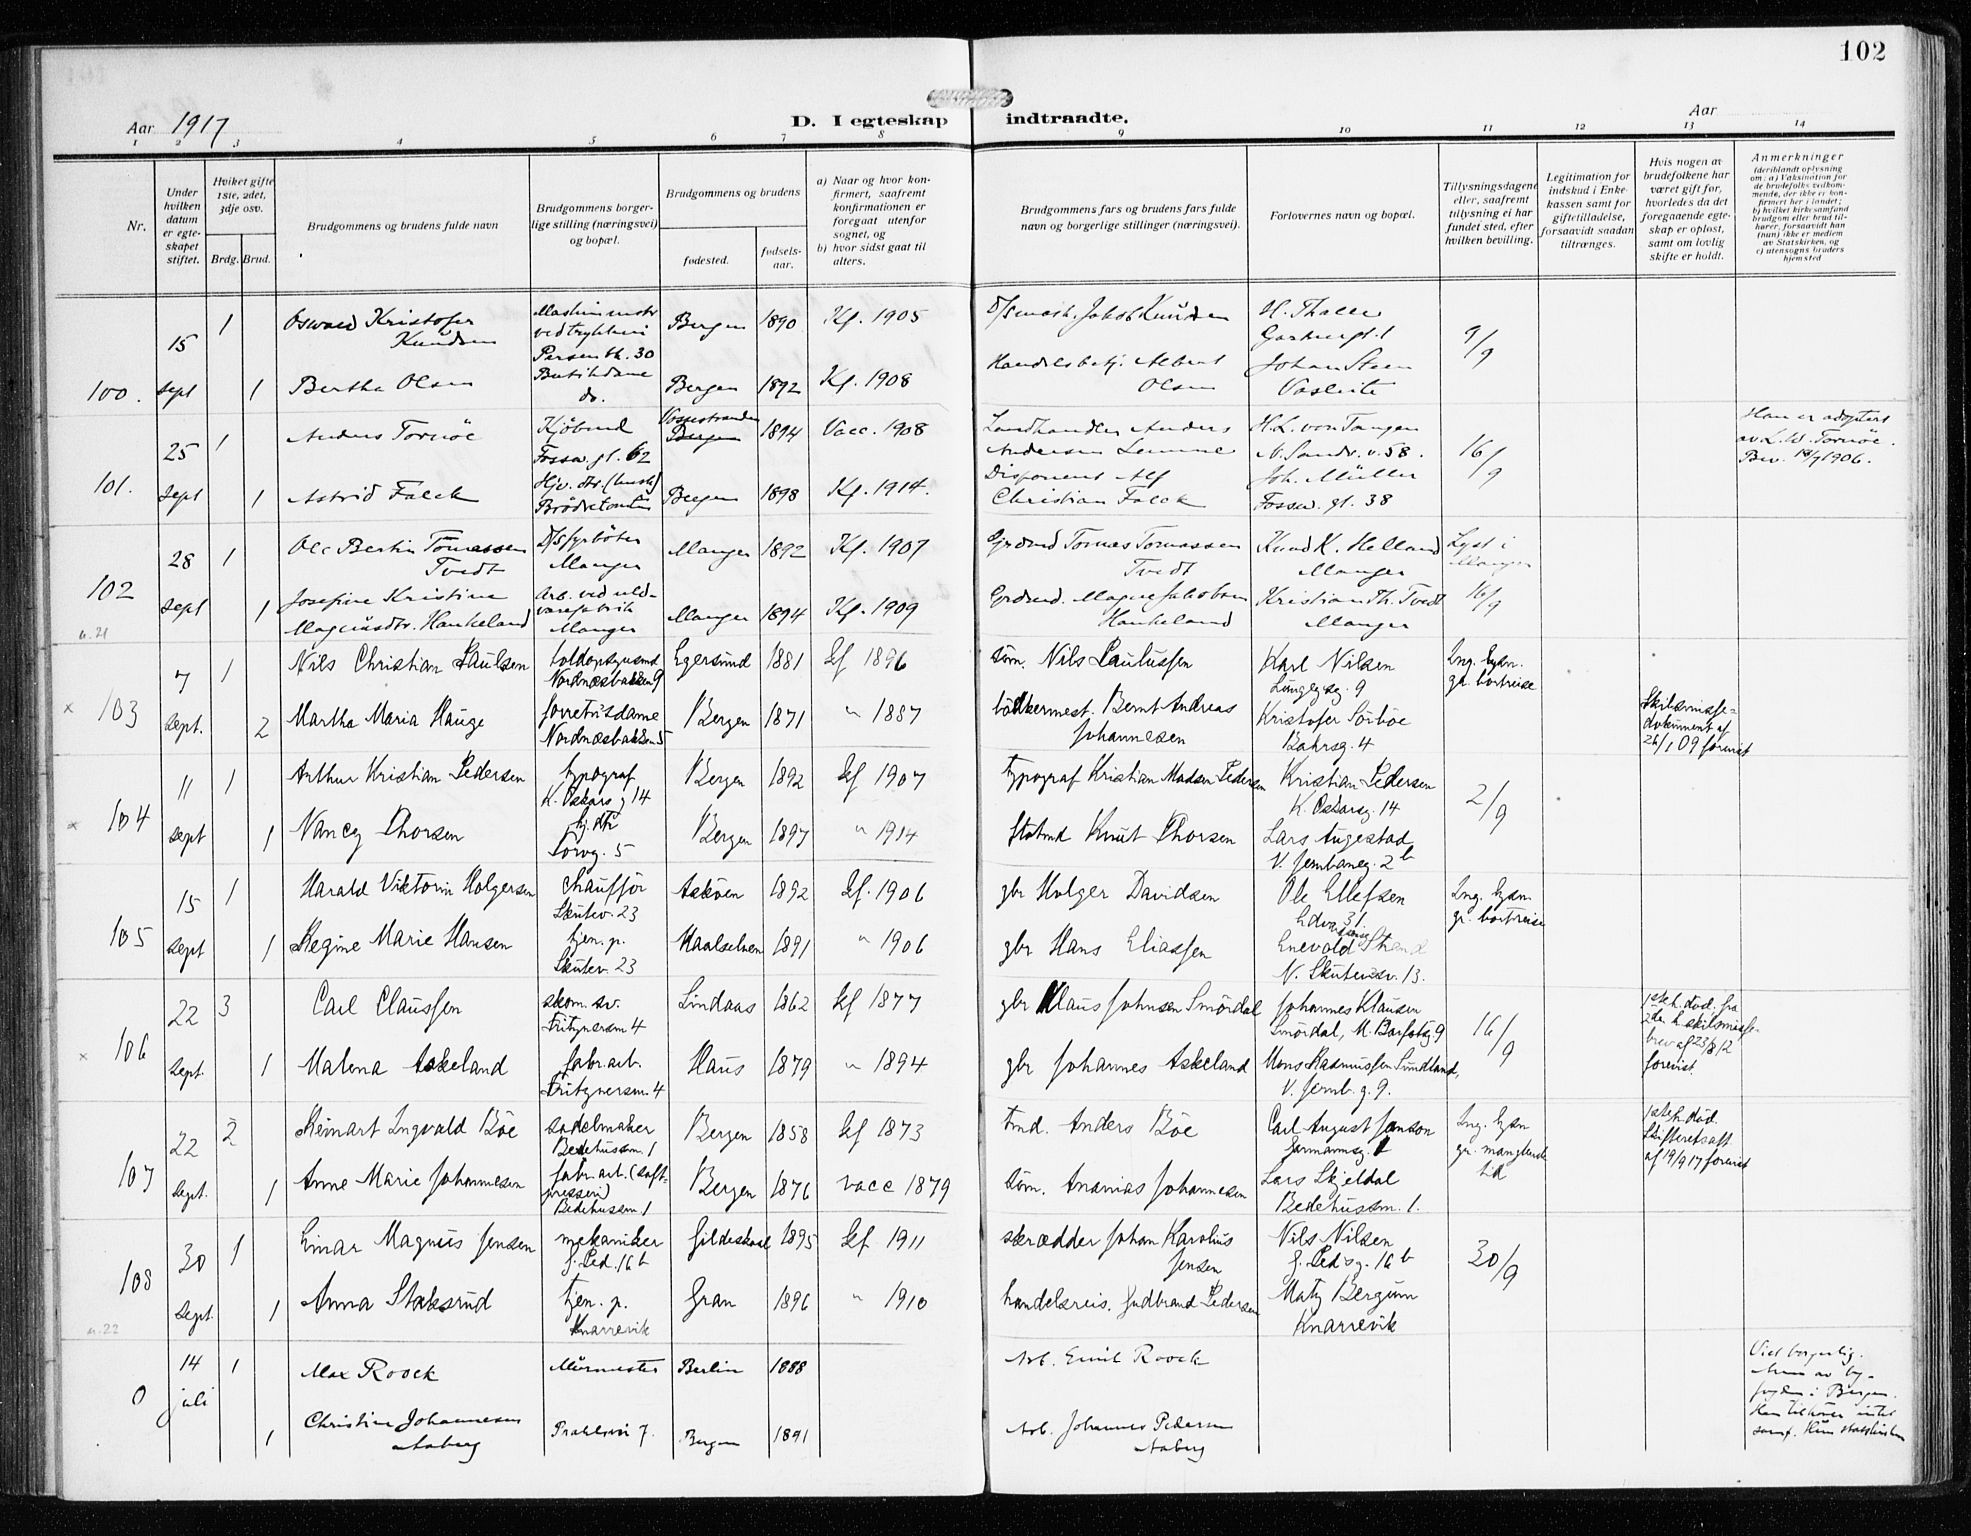 102
Aar 1917
D. I egteskap indtraadte.
Aar
1 2 3 4 5 6 7 8 9 10 11 12 13 14
Nr.
Under hvilken datum er egteskapet stiftet.
Hvilket gifte 1ste, 2det, 3dje osv.
Brdg. Brud.
Brudgommens og brudens fulde navn
Brudgommens borgerlige stilling (næringsvei) og bopæl.
Brudgommens og brudens
fødested.
fødselsaar.
a) Naar og hvor konfirmert, saafremt konfirmationen er foregaat utenfor sognet, og
b) hvor sidst gaat til alters.
Brudgommens fars og brudens fars fulde navn og borgerlige stillinger (næringsvei).
Forlovernes navn og bopæl.
Tillysningsdagene eller, saafremt tillysning ei har fundet sted, efter hvilken bevilling.
Legitimation for indskud i Enkekassen samt for giftetilladelse, forsaavidt saadan tiltrænges.
Hvis nogen av brudefolkene har været gift før, hvorledes da det foregaaende egteskap er opløst, samt om lovlig skifte er holdt.
Anmerkninger
(deriblandt oplysning om: a) Vaksination for de brudefolks vedkommende, der ikke er konfirmert her i landet;
b) hvilket kirkesamfund brudgom eller brud tilhører, forsaavidt han (hun) ikke er medlem av Statskirken, og
c) utensogns bruders hjemsted
100. 15 sept 1 Oswald Kristofer Knudsen Bergen 1890 Kf. 1905 Jakob Knudsen H. Thalle 9/9
1 Bertha Olsen do. Bergen 1892 Kf. 1908 Handelsbetj. Albert Olsen Johan Steen
101. 25 sept 1 Anders Tornöe Fossw. gt. 62 Vossestranden Bergen 1894 Vacc. 1908 Landhandler Anders Andersen H. L. von Tangen N. Sandv. v. 58. 16/9 Han er adoptert av L. W. Tornöe. Bev. 1906.
1 Astrid Falck Bergen 1898 Kf. 1914. Disponent Alf Christian Falck Joh. Müller Fossw. gt. 38
102 28 sept 1 Ole Bertin Tomassen Tvedt D/S fyrböter Manger Manger 1892 Kf. 1907 Grdmd Tomas Tomassen Tvedt Knud K. Helland Manger Lyst i Manger
1 Josefine Kristine Magnusdtr. Hankeland Arb. ved uldvarefabrik Manger Manger 1894 Kf. 1909 Grdmd. Magne Jakobsen Hankeland Kristian Th. Tvedt Manger 16/9
n. 21
x 103 7 sept. 1 Nils Christian Paulsen toldopsynsmd Nordnæsbakken 9 Egersund 1881 kf 1896 söm. Nils Paulussen Karl Nilsen 9 Ing. lysn. gr. bortreise
2 Martha Maria Hauge forretn.dame Nordnæsbakken 5 Bergen 1871 " 1887 bödkermest. Bernt Andreas Johannesen Kristofer Sörböe 4 Skilsmissedokument af 26/1 09 forevist
x 104 11 sept 1 Arthur Kristian Pedersen typograf K. Oskars g 14 Bergen 1892 kf 1907 typograf Kristian Madsen Pedersen Kristian Pedersen K. Oskarsg. 14 2/9
1 Nancy Thorsen hj. dtr Torvg. 5 Bergen 1897 " 1914 Knut Thorsen Lars Augestad V. Jernbaneg. 2b
105 15 sept 1 Harald Viktorin Holgersen Chaufför Skutev. 23 Asköen 1892 kf. 1906 gbr Holger Davidsen Ole Ellefsen Ing. lysn. gr. bortreise
1 Regine Marie Hansen tjen. p. Skutev. 23 Maalselven 1891 " 1906 gbr Hans Eliassen Enevold Strand N. Skutevsv. 13.
x 106 22 sept. 3 Carl Claussen skom. sv. Fritznersm 4 Lindaas 1862 kf 1877 gbr Klaus Johnsen Smördal Johannes Klausen Smördal, M. Barfotsg. 9 16/9 1ste h. död. fra 2den h skilsmissebrev af 23/8 12 forevist.
1 Malena Askeland fabr. arb. Fritznersm. 4 Haus 1879 " 1894 gbr Johannes Askeland Mons Rasmussen Sundland, V. Jernb. g. 9.
107 22 sept. 2 Reinart Ingvald Böe sadelmaker Bedehussm. 1 Bergen 1858 kf 1873 Anders Böe Carl August Janson Ing. lysn gr. manglende tid 1ste h. död. Skifteretsatt af 19/9 17 forevist
1 Anne Marie Johannesen fabr. arb. (saftpresseri) Bedehussm 1 Bergen 1876 vacc 1879 söm. Ananias Johannesen Lars Skjeldal Bedehussm. 1.
108 30 sept. 1 Einar Magnus Jensen mekaniker J. Ped. 16 b Gildeskaal 1895 kf 1911 skrædder Johan Karolius Jensen Nils Nilsen J. Peds g. 16 b 30/9
1 Anna Staksrud tjen. p. Knarrevik Gran 1896 " 1910 handelsreis. Gudbrand Pedersen Matz Bergum Knarrevik
n. 22
0 14 juli 1 Max Roock Murmester Berlin 1888 Arb. Emil Roock Viet borgerlig. av byfogden i Bergen. Han tilhører intet samf. Hun statskirken
1 Christine Johannesen Aaberg 7. Bergen 1891 Arb. Johannes Pedersen Aaberg